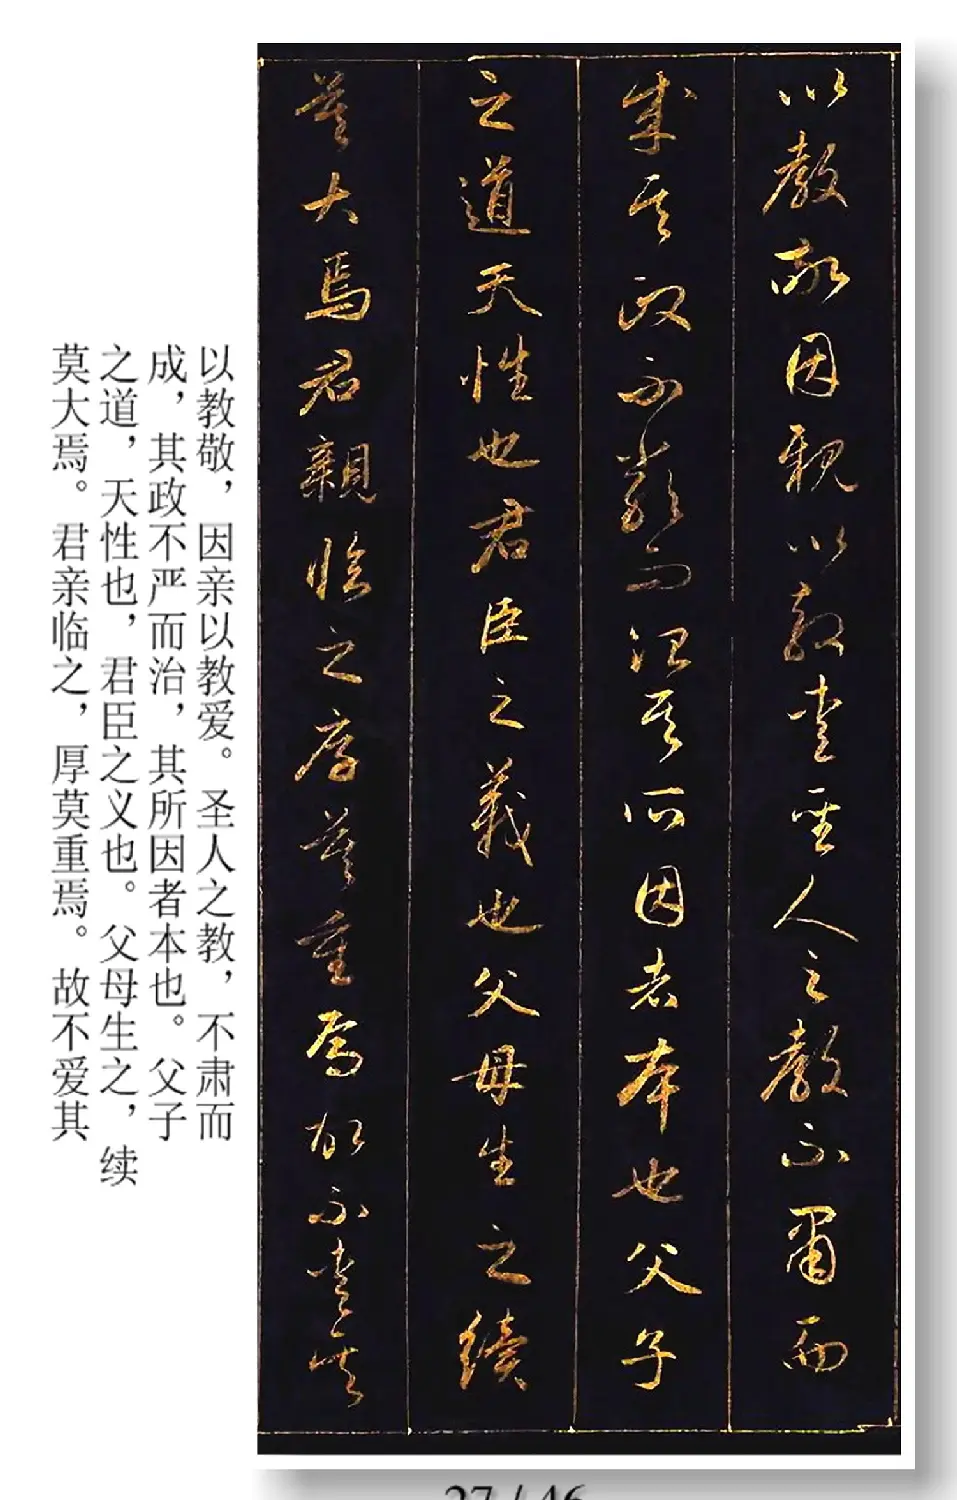 以教敬因親以教愛聖人之教不肅而
成其政不嚴而治其所因者本也父子
之道天性也君臣之義也父母生之續
莫大焉君親臨之厚莫重焉故不愛其
以教敬，因亲以教爱。圣人之教，不肃而
成，其政不严而治，其所因者本也。父子
之道，天性也，君臣之义也。父母生之，续
莫大焉。君亲临之，厚莫重焉。故不爱其
27 / 46